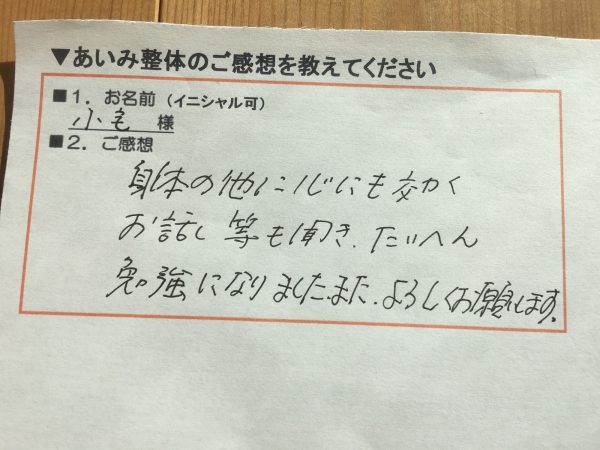 ▼あいみ整体のご感想を教えてください
■1.お名前(イニシャル可)
小宅 様
■2.ご感想
身体の他に心にも効く
お話し等も聞き、たいへん
勉強になりました。また、よろしくお願します。